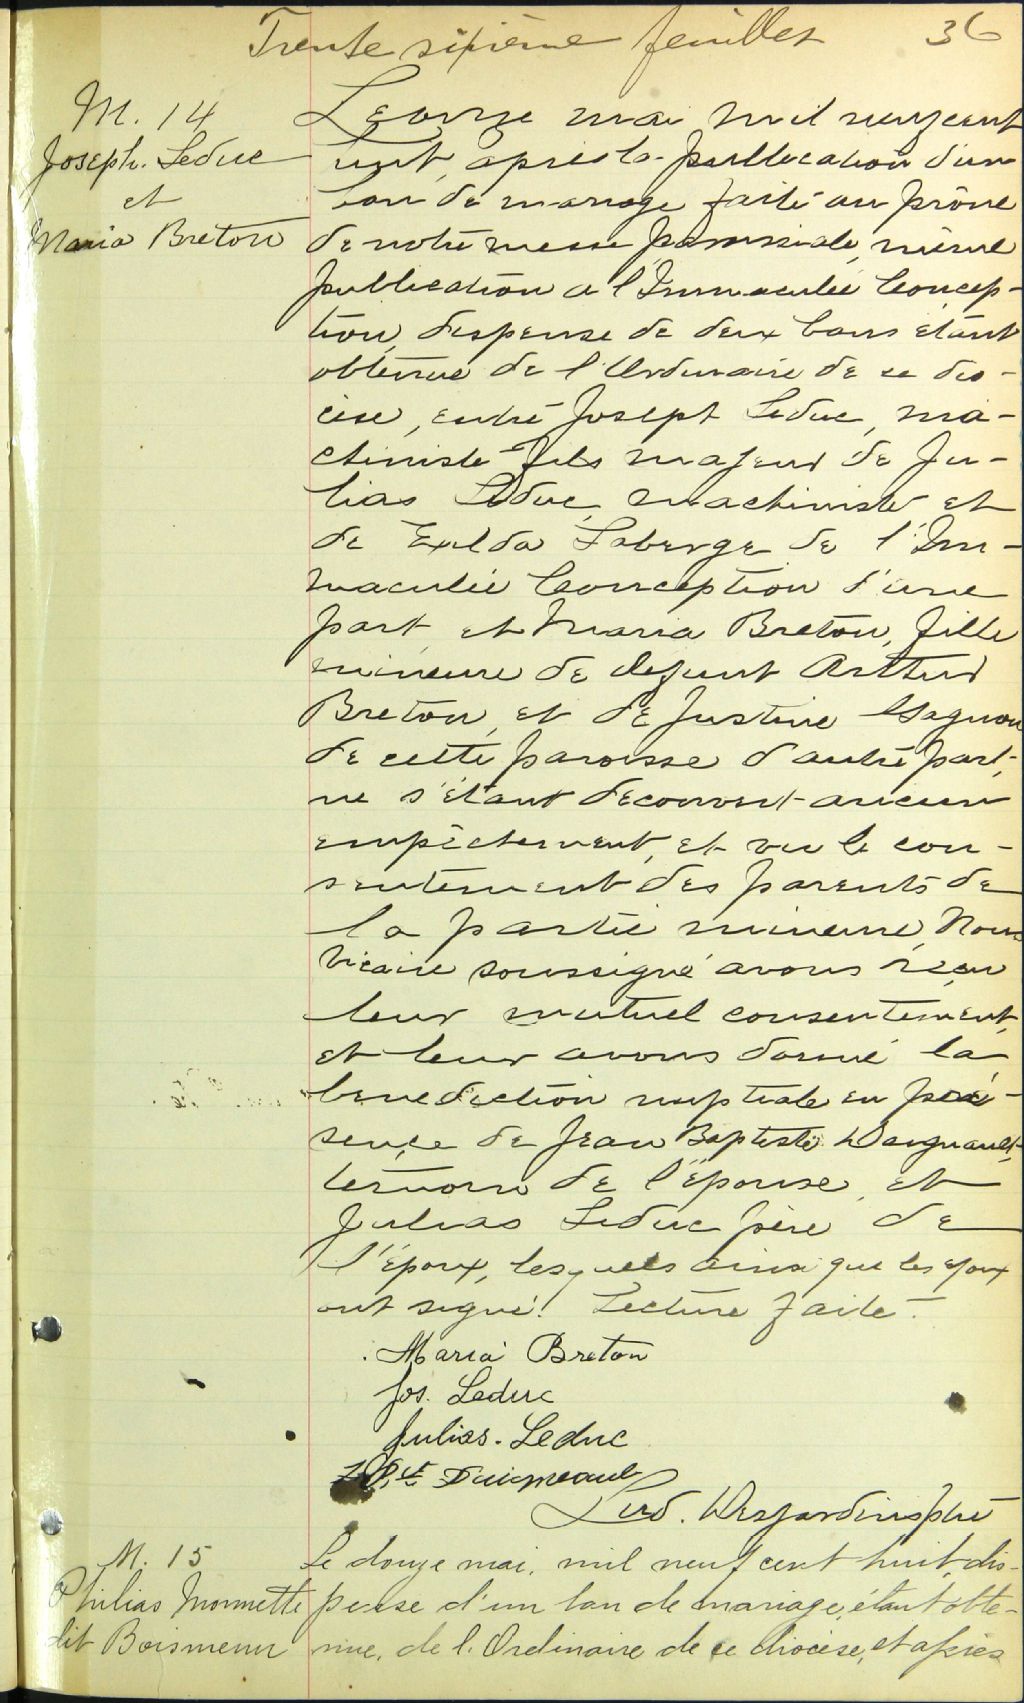 Trente sixième feuillet 36
M. 14
Joseph Leduc
et
Maria Breton
Le onze mai mil neuf cent
huit, après la publication d'un
ban de mariage faite au prône
de notre messe paroissiale, même
publication à l'Immaculée Concep-
tion, dispense de deux bans étant
obtenue de l'Ordinaire de ce dio-
cèse, entre Joseph Leduc, ma-
chiniste fils majeur de Ju-
lias Leduc, machiniste et
de Exilda Laberge de l'Im-
maculée Conception d'une
part, et Maria Breton, fille
mineure de defunt Arthur
Breton, et de Justine Gagnon
de cette paroisse d'autre part,
ne s'étant decouvert aucun
empêchement, et vu le con-
sentement des parents de
la partie mineure, Nous
Vicaire soussigné avons reçu
leur mutuel consentement,
et leur avons donné la
benediction nuptiale en pré-
sence de Jean Baptiste Daigneault,
temoin de l'épouse, et
Julias Leduc père de
l'époux, lesquels ainsi que les époux
ont signé. Lecture faite.
Maria Breton
Jos. Leduc
Julias. Leduc
J Bte Daigneault
Ludo. Desjardins ptre
M. 15
Philias Monnette
dit Boismenu
Le douze mai, mil neuf cent huit, dis-
pense d'un ban de mariage, étant obte-
nue, de l'Ordinaire de ce diocèse, et après